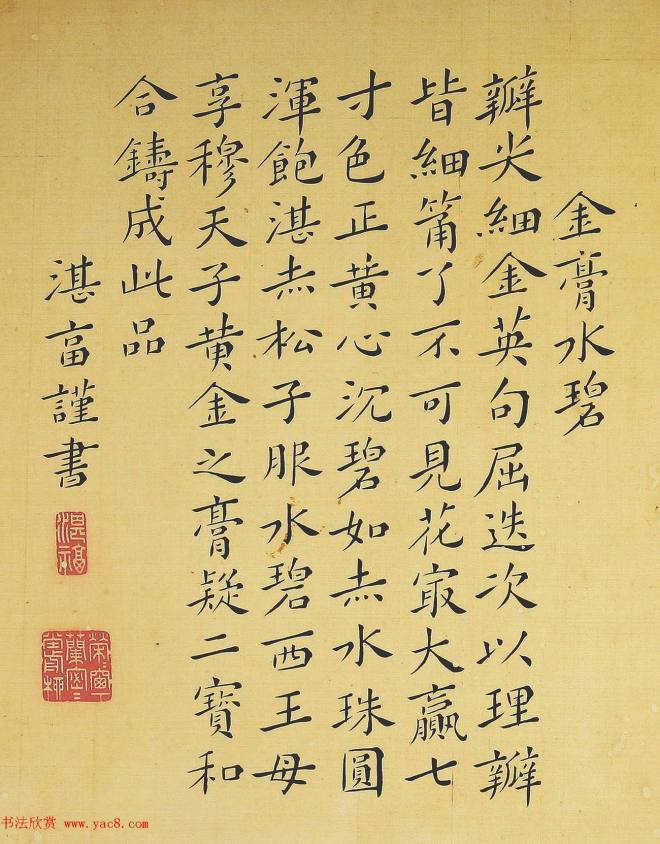 金膏水碧
瓣尖細金英句屈迭次以理瓣
皆細筩了不可見花㝡大贏七
寸色正黄心沉碧如赤水珠圓
渾飽湛赤松子服水碧西王母
享穆天子黄金之膏疑二寶和
合鑄成此品
湛富謹書
湛福
书法欣赏 www.yac8.com